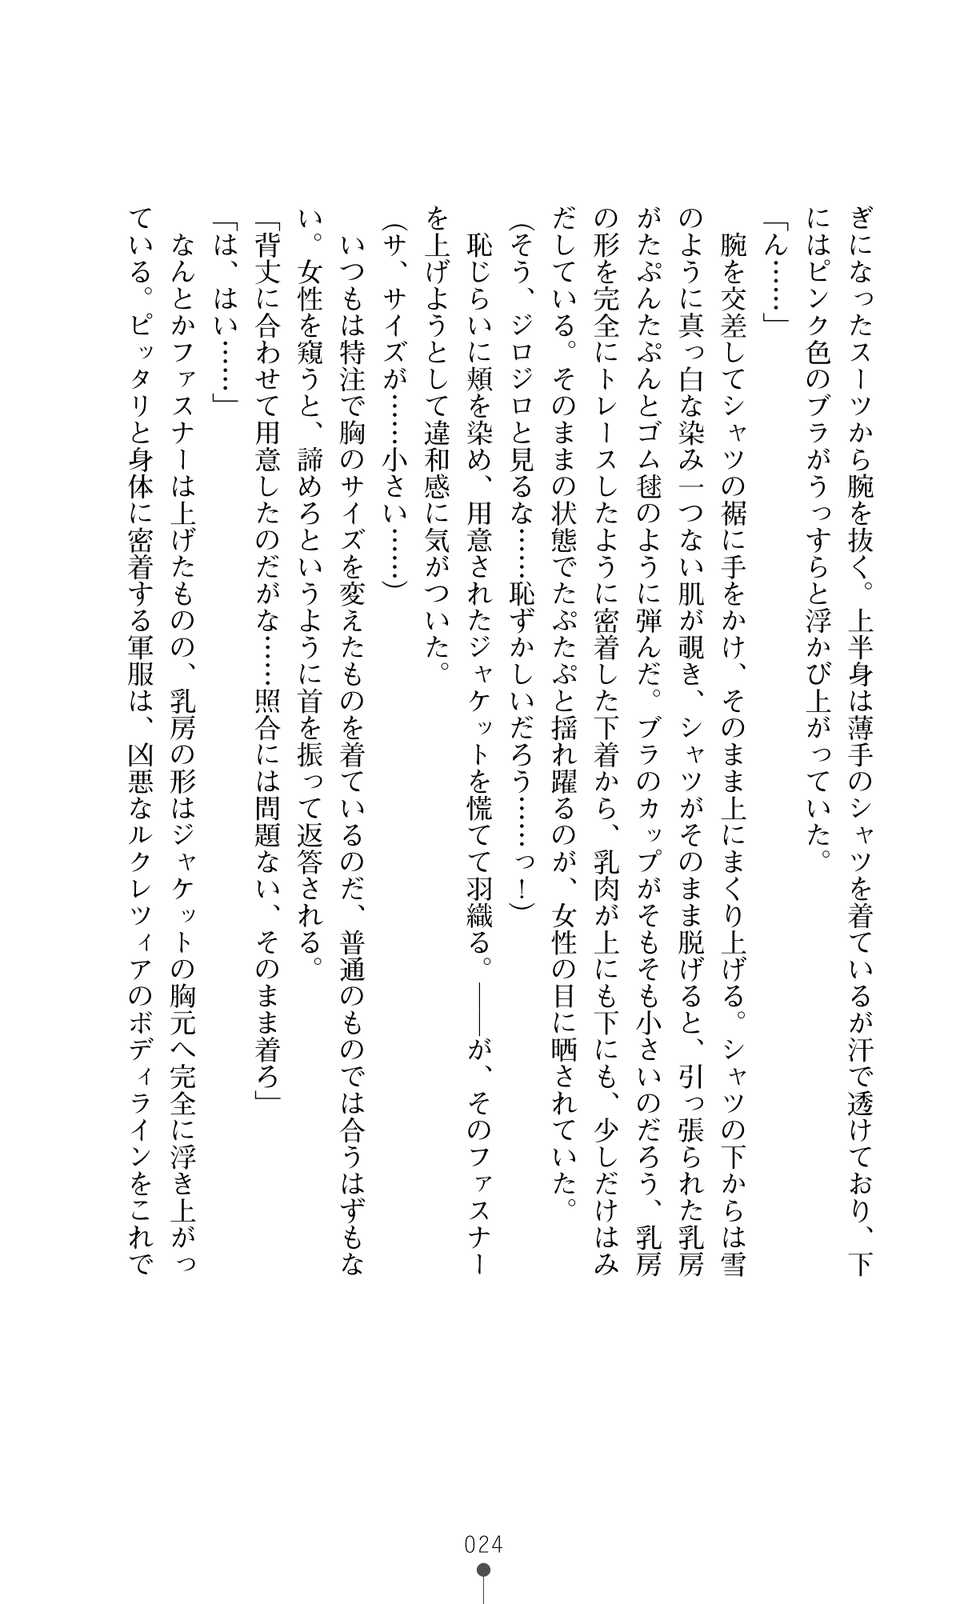 ぎになったスーツから腕を抜く。上半身は薄手のシャツを着ているが汗で透けており、下
にはピンク色のブラがうっすらと浮かび上がっていた。
「ん……」
　腕を交差してシャツの裾に手をかけ、そのまま上にまくり上げる。シャツの下からは雪
のように真っ白な染み一つない肌が覗き、シャツがそのまま脱げると、引っ張られた乳房
がたぷんたぷんとゴム毬のように弾んだ。ブラのカップがそもそも小さいのだろう、乳房
の形を完全にトレースしたように密着した下着から、乳肉が上にも下にも、少しだけはみ
だしている。そのままの状態でたぷたぷと揺れ躍るのが、女性の目に晒されていた。
（そう、ジロジロと見るな……恥ずかしいだろう……っ！）
　恥じらいに頬を染め、用意されたジャケットを慌てて羽織る。――が、そのファスナー
を上げようとして違和感に気がついた。
（サ、サイズが……小さい……）
　いつもは特注で胸のサイズを変えたものを着ているのだ、普通のものでは合うはずもな
い。女性を窺うと、諦めろというように首を振って返答される。
「背丈に合わせて用意したのだがな……照合には問題ない、そのまま着ろ」
「は、はい……」
　なんとかファスナーは上げたものの、乳房の形はジャケットの胸元へ完全に浮き上がっ
ている。ピッタリと身体に密着する軍服は、凶悪なルクレツィアのボディラインをこれで
024